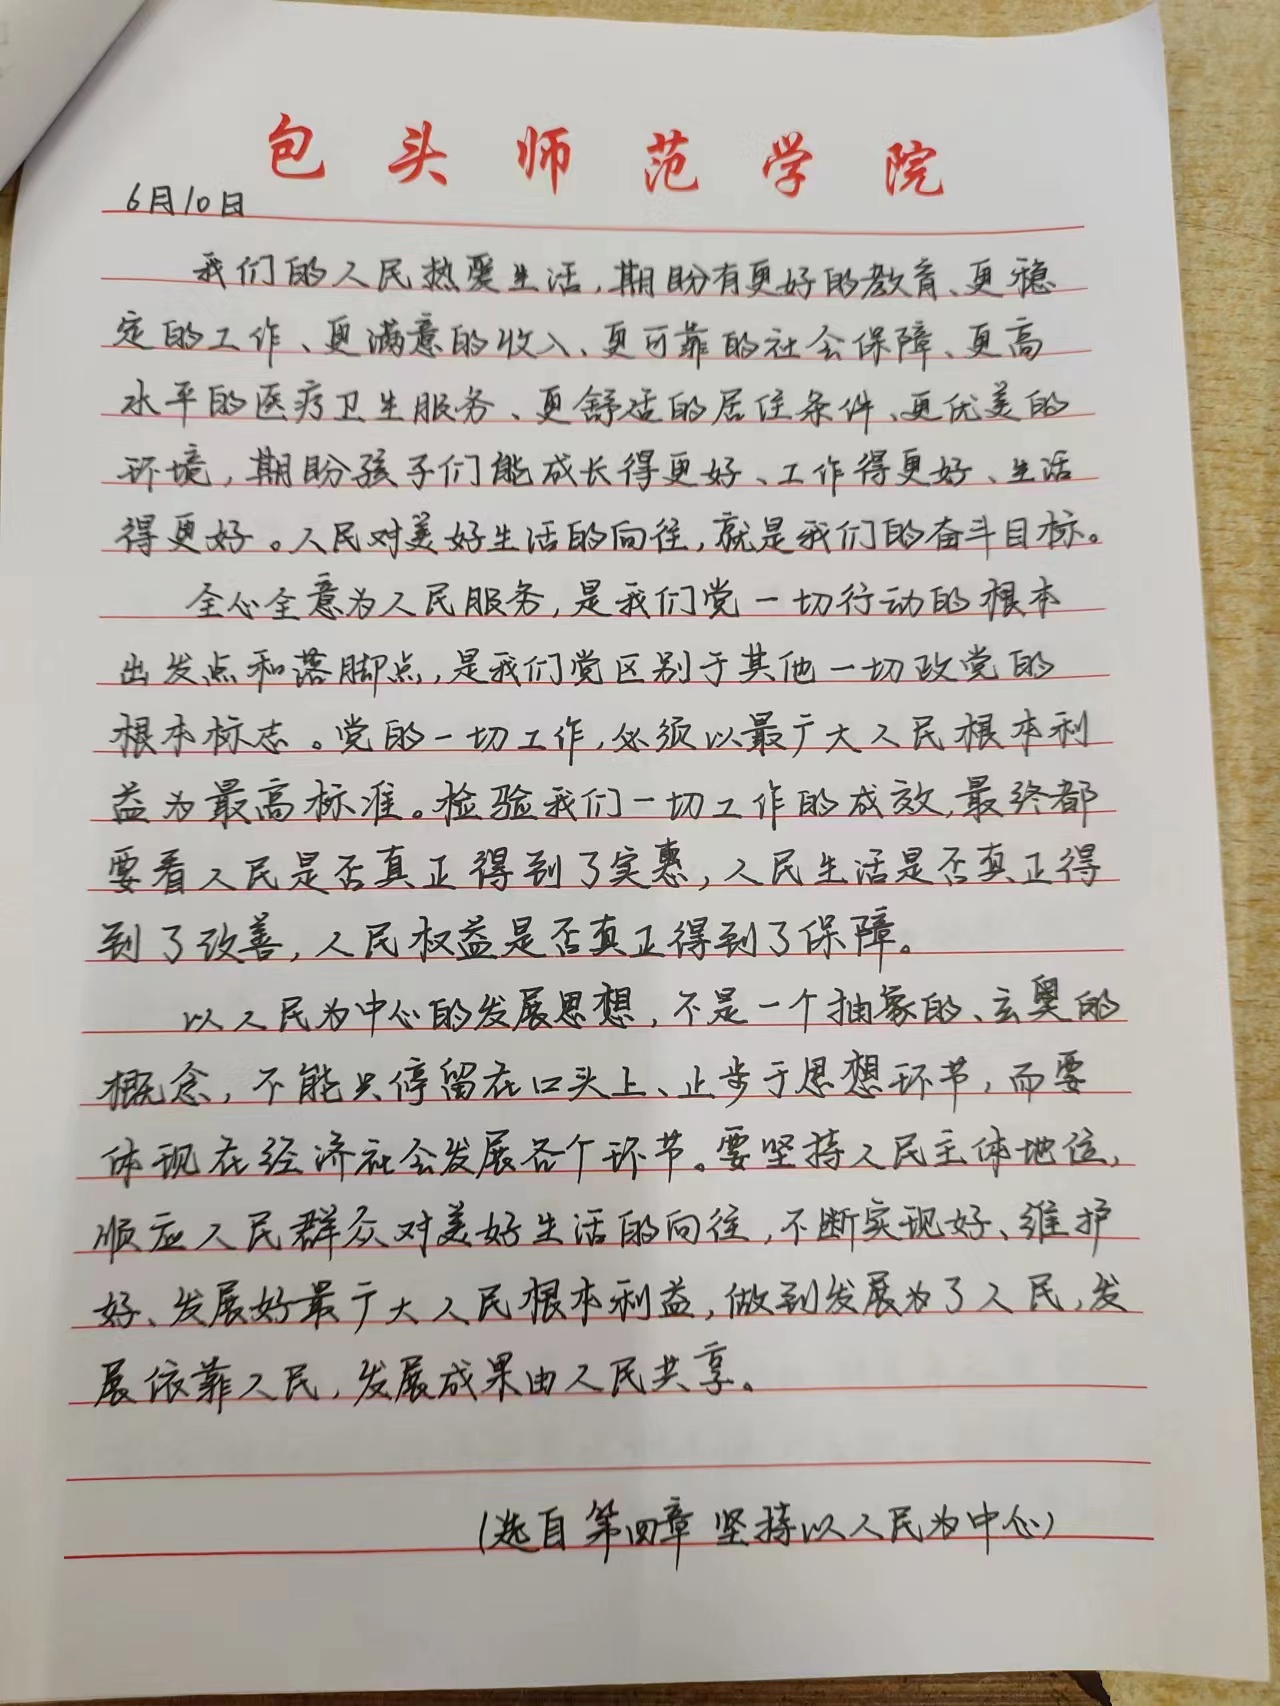 包头师范学院
6月10日
我们的人民热爱生活,期盼有更好的教育、更稳
定的工作、更满意的收入、更可靠的社会保障、更高
水平的医疗卫生服务、更舒适的居住条件、更优美的
环境,期盼孩子们能成长得更好、工作得更好、生活
得更好。人民对美好生活的向往,就是我们的奋斗目标。
全心全意为人民服务,是我们党一切行动的根本
出发点和落脚点,是我们党区别于其他一切政党的
根本标志。党的一切工作,必须以最广大人民根本利
益为最高标准。检验我们一切工作的成效,最终都
要看人民是否真正得到了实惠,人民生活是否真正得
到了改善,人民权益是否真正得到了保障。
以人民为中心的发展思想,不是一个抽象的、玄奥的
概念,不能只停留在口头上、止步于思想环节,而要
体现在经济社会发展各个环节。要坚持人民主体地位,
顺应人民群众对美好生活的向往,不断实现好、维护
好、发展好最广大人民根本利益,做到发展为了人民,发
展依靠人民,发展成果由人民共享。
(选自第四章 坚持以人民为中心)